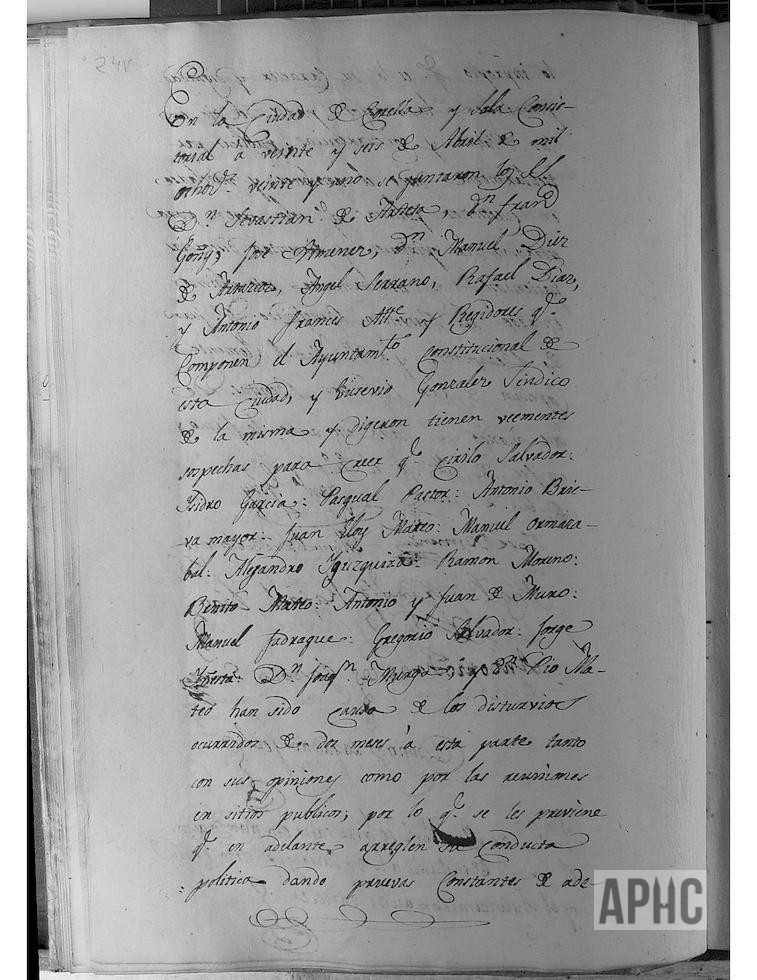 24v
En la Ciudad de Corella y Sala Consis-
torial a veinte y seis de Abril de mil
ochocs. veinte y uno se juntaron los SS.
Dn. Sevastian de Arteta, Dn Franco
Goñy, José Ximenez, Dn Manuel Diez
de Angel Serrano, Rafael Diaz,
y Antonio Frances Alte. y Regidores q.e
componen el Ayuntamto. constitucional de
esta Ciudad, y Eusevio Gonzalez Sindico
de la misma y digeron tienen veementes
sospechas para creer q.e Cirilo Salvador:
Ysidro Garcia: Pasqual Pastor: Antonio Brie-
va mayor: Juan Eloy Mateo: Manuel Ormaza-
bal: Alejandro Yguzquiza: Ramon Moreno:
Benito Mateo: Antonio y Juan de Muro:
Manuel Jadraque: Gregorio Salvador: Jorge
Dn. Joaqn. Murga, y Pio Ma-
teo han sido causa de los disturvios
ocurridos de dos meses á esta parte tanto
con sus opiniones como por las reuniones
en sitios publicos; por lo q.e se les previene
q.e en adelante arreglen su conducta
politica dando pruevas constantes de ade-
APHC